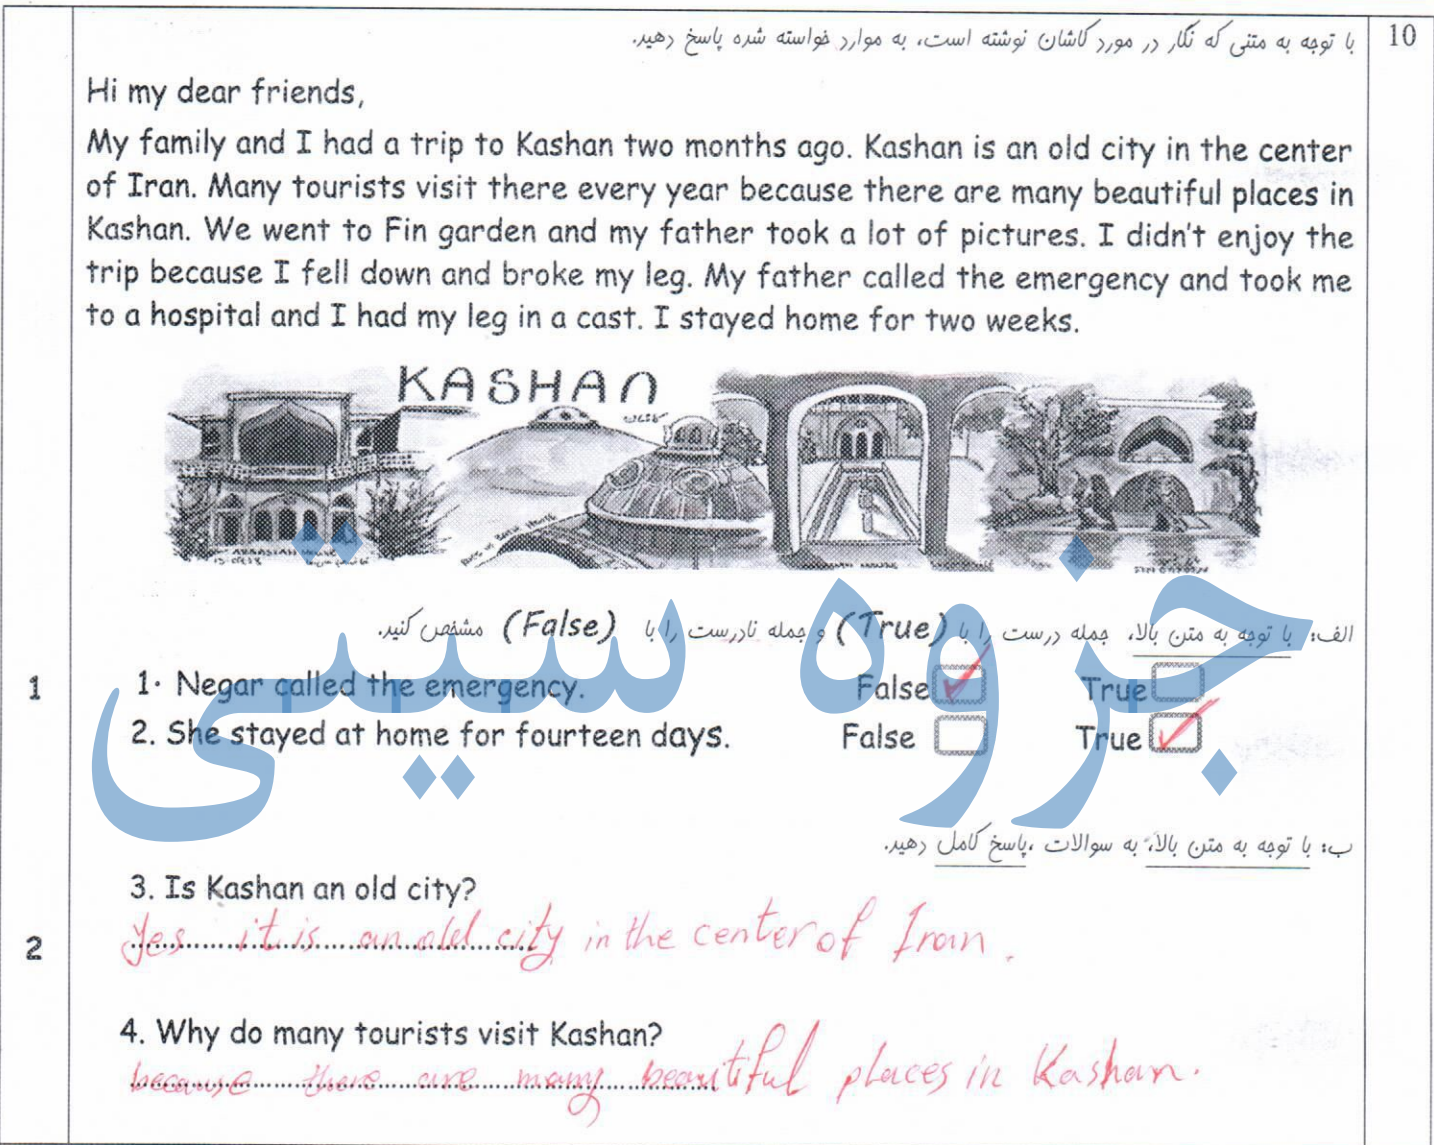 10
با توجه به متنی که نگار در مورد کاشان نوشته است، به موارد خواسته شده پاسخ دهید.
Hi my dear friends,
My family and I had a trip to Kashan two months ago. Kashan is an old city in the center
of Iran. Many tourists visit there every year because there are many beautiful places in
Kashan. We went to Fin garden and my father took a lot of pictures. I didn't enjoy the
trip because I fell down and broke my leg. My father called the emergency and took me
to a hospital and I had my leg in a cast. I stayed home for two weeks.
KASHAN
جزوه سیتی
الف: با توجه به متن بالا، جمله درست را با (True) و جمله نادرست را با (False) مشخص کنید.
1
1. Negar called the emergency. False True
2. She stayed at home for fourteen days. False True
ب: با توجه به متن بالا، به سوالات ،پاسخ کامل دهید.
3. Is Kashan an old city?
2
Yes it is an old city in the center of Iran.
4. Why do many tourists visit Kashan?
because there are many beautiful places in Kashan.